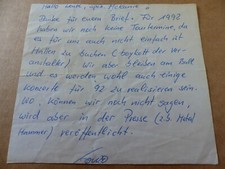 Hallo
Danke für einen Brief. Für 1992
haben wir noch keine Tourtermine, da
es für uns auch nicht einfach ist
Hallen zu suchen (Boykott der Ver-
anstalter) Wir aber bleiben am Ball
und es werden wohl auch einige
Konzerte für 92 zu realisieren sein.
Wo, können wir noch nicht sagen,
wird aber in der Presse (z.B. Metal
Hammer) veröffentlicht.